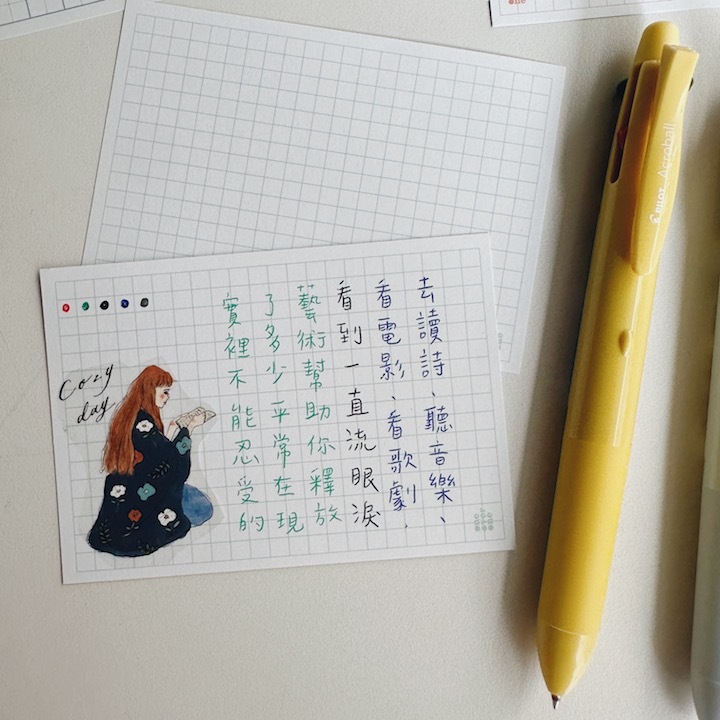 去讀詩、聽音樂、
看電影、看歌劇，
看到一直流眼淚
藝術幫助你釋放
了多少平常在現
實裡不能忍受的
Cozy
day
PILOT Acroball
one